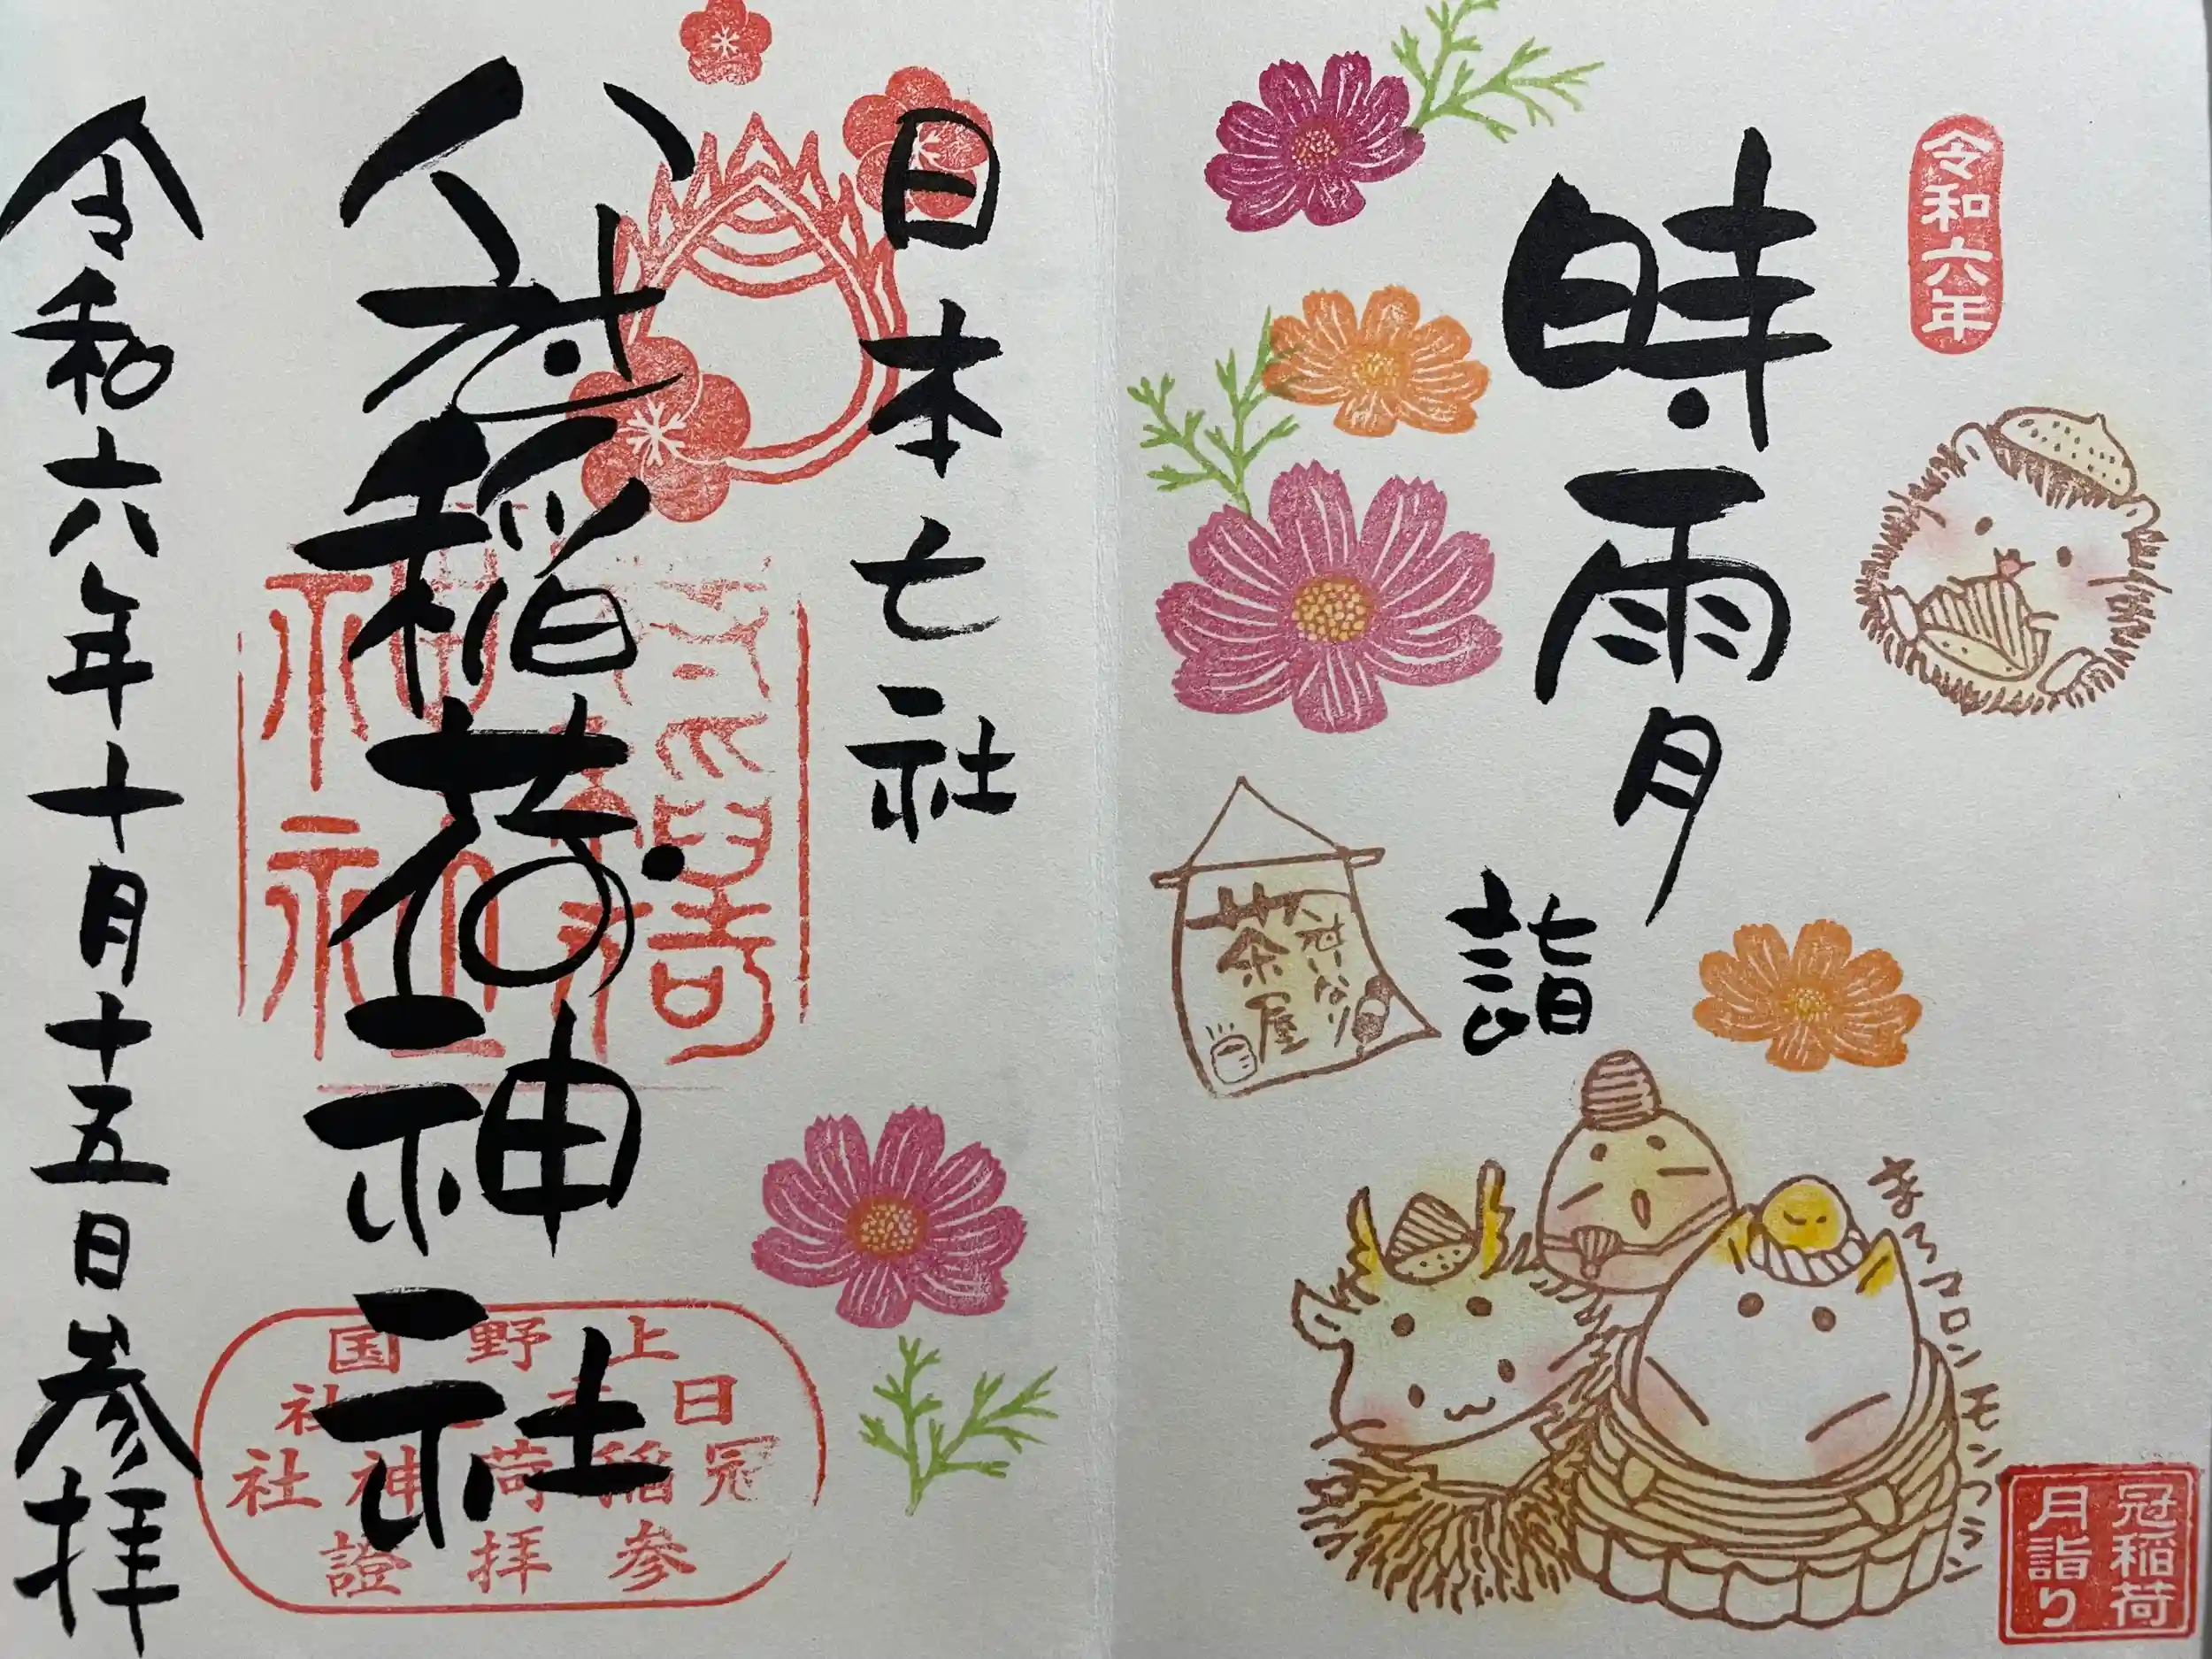 令和六年
時雨月
詣
冠いなり
茶屋
まろマロンモンブラン
冠稲荷
月詣り
日本七社
冠稲荷神社
令和六年十月十五日参拝
上野国
日本七社
冠稲荷神社
参拝證